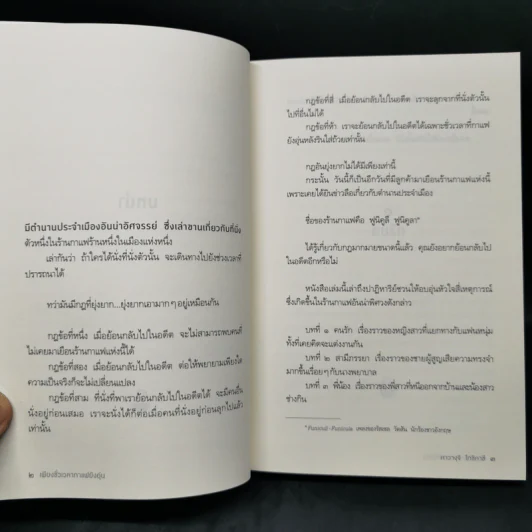 มีตำนานประจำเมืองอันน่าอัศจรรย์ ซึ่งเล่าขานเกี่ยวกับที่นั่ง
ตัวหนึ่งในร้านกาแฟร้านหนึ่งในเมืองแห่งหนึ่ง
เล่ากันว่า ถ้าใครได้นั่งที่นั่งตัวนั้น จะเดินทางไปยังช่วงเวลาที่
ปรารถนาได้
ทว่ามันมีกฎที่ยุ่งยาก...ยุ่งยากเอามากๆ อยู่เหมือนกัน
กฎข้อที่หนึ่ง เมื่อย้อนกลับไปในอดีต จะไม่สามารถพบคนที่
ไม่เคยมาเยือนร้านกาแฟแห่งนี้ได้
กฎข้อที่สอง เมื่อย้อนกลับไปในอดีต ต่อให้พยายามเพียงใด
ความเป็นจริงก็จะไม่เปลี่ยนแปลง
กฎข้อที่สาม ที่นั่งที่พาเราย้อนกลับไปในอดีตได้ จะมีคนอื่น
นั่งอยู่ก่อนเสมอ เราจะนั่งได้ก็ต่อเมื่อคนที่นั่งอยู่ก่อนลุกไปแล้ว
เท่านั้น
๒ เพียงชั่วเวลากาแฟยังอุ่น
กฎข้อที่สี่ เมื่อย้อนกลับไปในอดีต เราจะลุกจากที่นั่งตัวนั้น
ไปที่อื่นไม่ได้
กฎข้อที่ห้า เราจะย้อนกลับไปในอดีตได้เฉพาะชั่วเวลาที่กาแฟ
ยังอุ่นหลังรินใส่ถ้วยเท่านั้น
กฎอันยุ่งยากไม่ได้มีเพียงเท่านี้
กระนั้น วันนี้ก็เป็นอีกวันที่มีลูกค้ามาเยือนร้านกาแฟแห่งนี้
เพราะเคยได้ยินข่าวลือเกี่ยวกับตำนานประจำเมือง
ชื่อของร้านกาแฟคือ ฟูนิคูลี ฟูนิคูลา*
ได้รู้เกี่ยวกับกฎมากมายขนาดนี้แล้ว คุณยังอยากย้อนกลับไป
ในอดีตอีกหรือไม่
หนังสือเล่มนี้เล่าถึงปาฏิหาริย์ชวนให้อบอุ่นหัวใจสี่เหตุการณ์
ซึ่งเกิดขึ้นในร้านกาแฟอันน่าพิศวงดังกล่าว
บทที่ ๑ คนรัก เรื่องราวของหญิงสาวที่แยกทางกับแฟนหนุ่ม
ทั้งที่เคยคิดจะแต่งงานกัน
บทที่ ๒ สามีภรรยา เรื่องราวของชายผู้สูญเสียความทรงจำ
มากขึ้นเรื่อยๆ กับนางพยาบาล
บทที่ ๓ พี่น้อง เรื่องราวของพี่สาวที่หนีออกจากบ้านและน้องสาว
ช่างกิน
คาวากุจิ โทชิคาซึ ๓